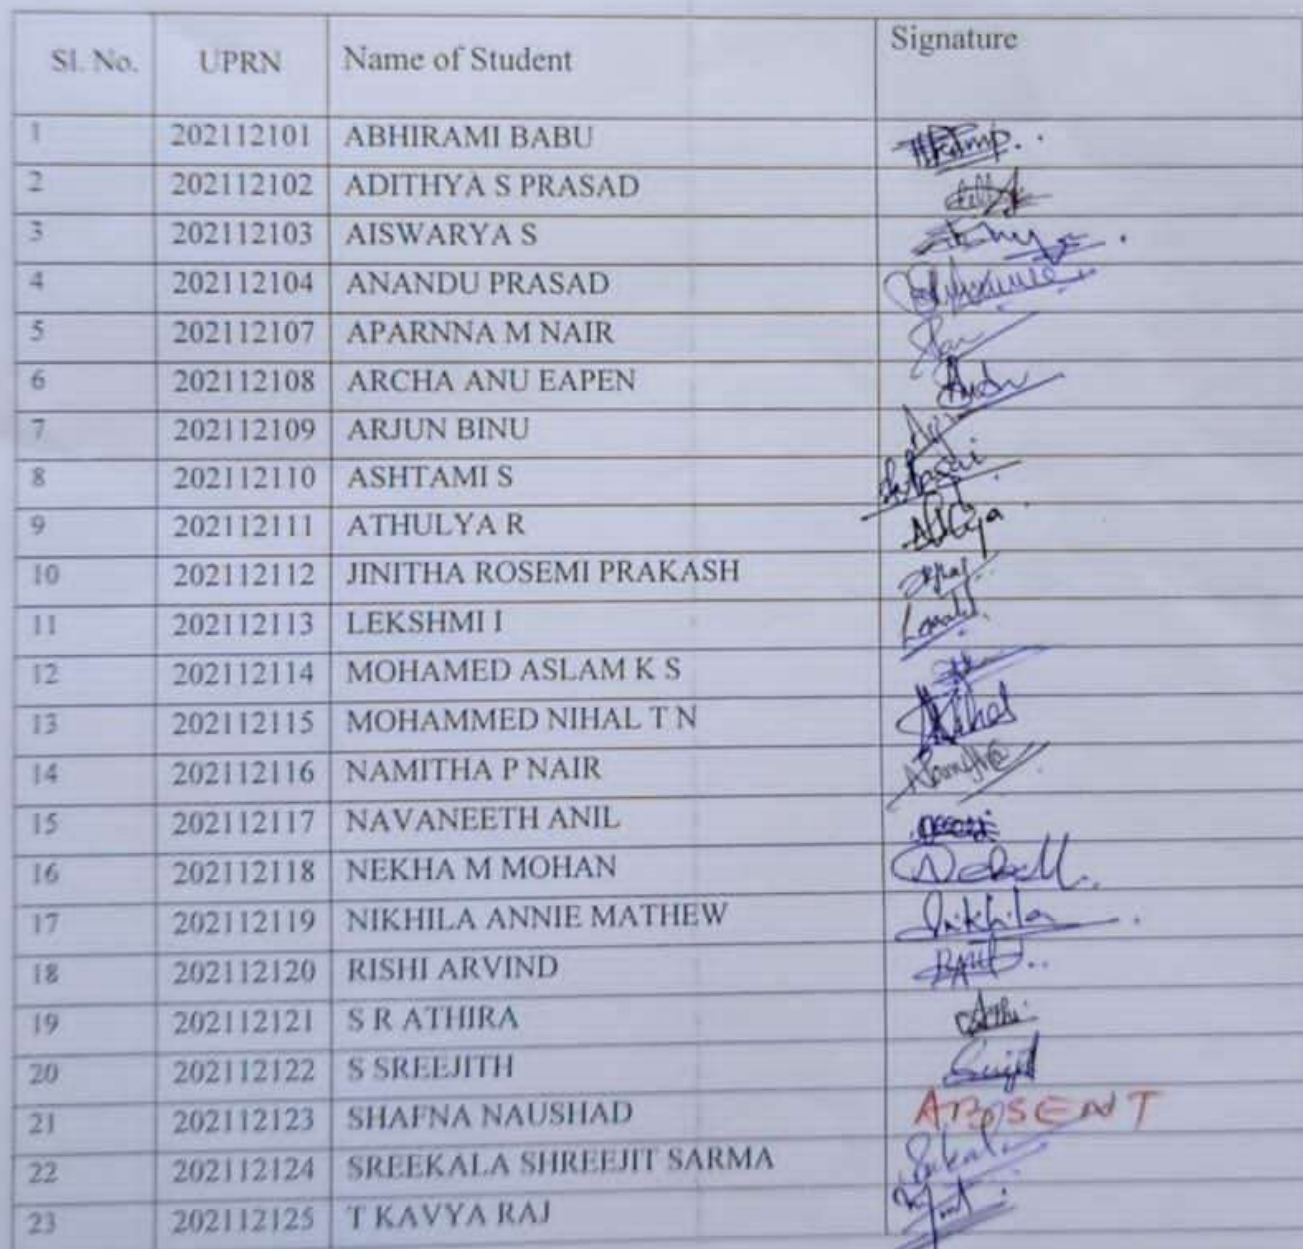 Sl. No. UPRN Name of Student Signature
1 202112101 ABHIRAMI BABU
2 202112102 ADITHYA S PRASAD
3 202112103 AISWARYA S
4 202112104 ANANDU PRASAD
5 202112107 APARNNA M NAIR
6 202112108 ARCHA ANU EAPEN
7 202112109 ARJUN BINU
8 202112110 ASHTAMI S
9 202112111 ATHULYA R
10 202112112 JINITHA ROSEMI PRAKASH
11 202112113 LEKSHMI I
12 202112114 MOHAMED ASLAM K S
13 202112115 MOHAMMED NIHAL T N
14 202112116 NAMITHA P NAIR
15 202112117 NAVANEETH ANIL
16 202112118 NEKHA M MOHAN
17 202112119 NIKHILA ANNIE MATHEW Nikhila
18 202112120 RISHI ARVIND
19 202112121 S R ATHIRA
20 202112122 S SREEJITH
21 202112123 SHAFNA NAUSHAD ABSENT
22 202112124 SREEKALA SHREEJIT SARMA
23 202112125 T KAVYA RAJ